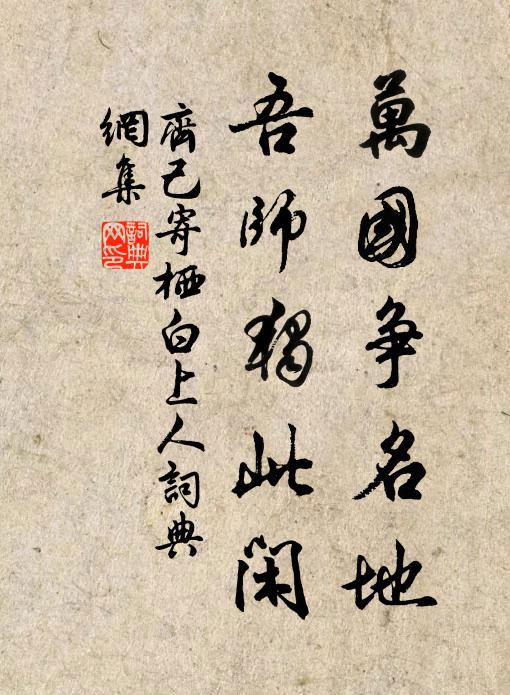 萬國争名地
吾師獨此閑
齊己寄栖白上人詞典
網集
詞典
网印